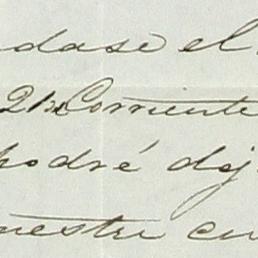 dase el
21 Corriente
podré dej
uestra en